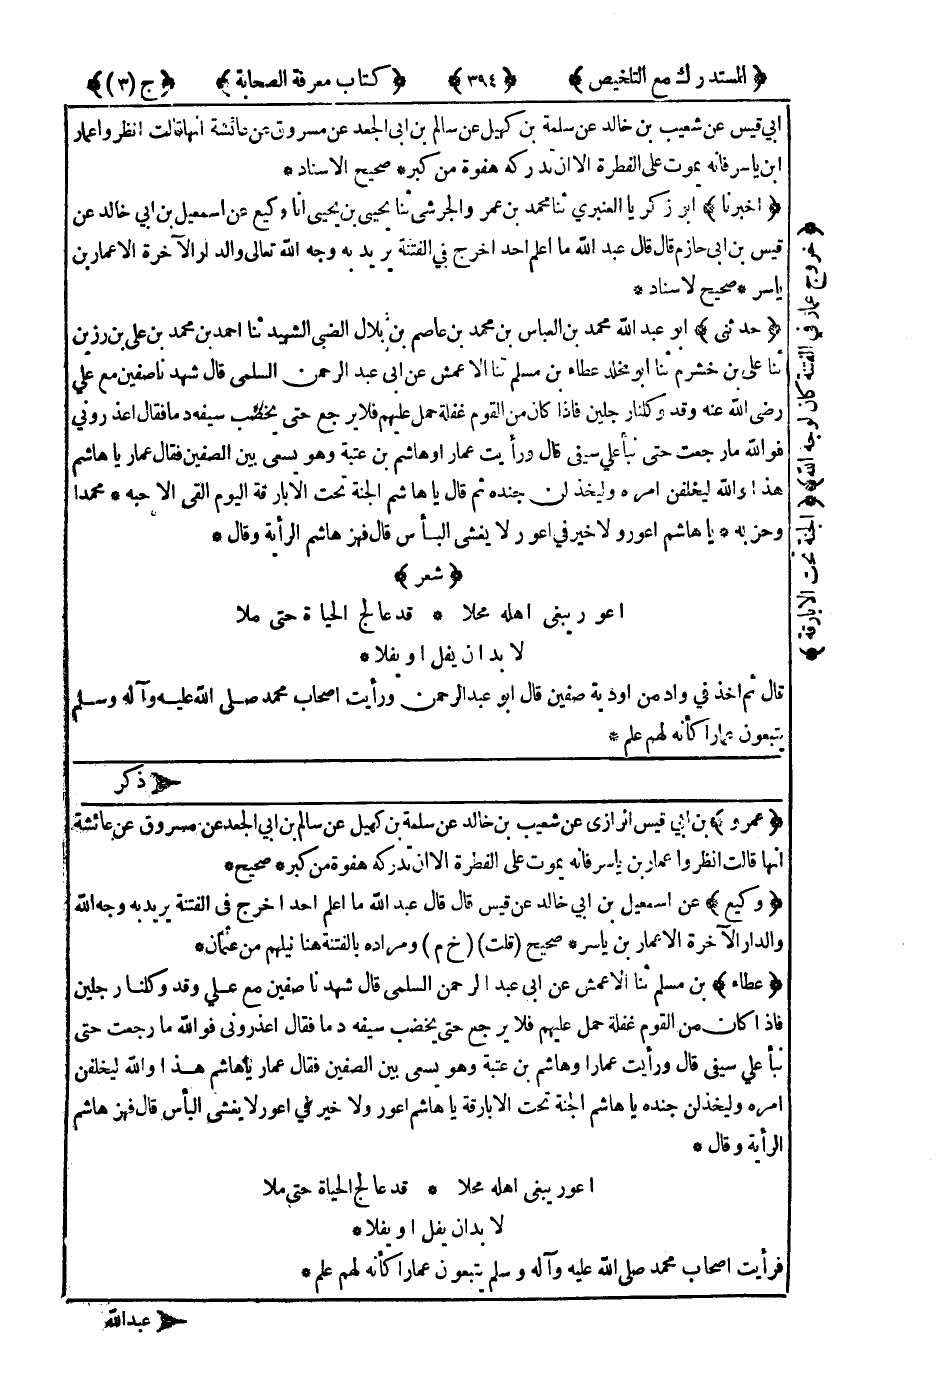 ﴿ المستدرك مع التلخيص ﴾ ﴿ ٣٩٤ ﴾ ﴿ كتاب معرفة الصحابة ﴾ ﴿ ج (٣) ﴾
ابي قيس عن شعيب بن خالد عن سلمة بن كهيل عن سالم بن ابى الجعد عن مسروق عن عائشة انها قالت انظروا عمار
ابن ياسر فانه يموت على الفطرة الا ان تدركه هفوة من كبر * صحيح الاسناد *
﴿ اخبرنا ﴾ ابو زكريا العنبري ثنا محمد بن عمرو الجرشى ثنا يحيى بن يحيى انا وكيع عن اسمعيل بن ابي خالد عن
قيس بن ابى حازم قال قال عبد الله ما اعلم احد اخرج في الفتنة يريد به وجه الله تعالى والدار الآخرة الا عمار بن
ياسر * صحيح لاسناد *
﴿ حدثنى ﴾ ابو عبد الله محمد بن العباس بن محمد بن عاصم بن بلال الضبى الشهيد ثنا احمد بن محمد بن على بن رزين
ثنا على بن خشرم ثنا ابو مخلد عطاء بن مسلم ثنا الاعمش عن ابى عبد الرحمن السلمى قال شهدنا صفين مع علي
رضى الله عنه وقد وكلنا رجلين فاذا كان من القوم غفلة حمل عليهم فلا يرجع حتى يخضب سيفه دما فقال اعذروني
فوالله ما رجعت حتى نبأ علي سيفى قال ورأيت عمارا وهاشم بن عتبة وهو يسمى بين الصفين فقال عمار يا هاشم
هذا والله ليخلفن امره وليخذلن جنده ثم قال يا هاشم الجنة تحت الابارقة اليوم القى الاحبه * محمدا
وحزبه * يا هاشم اعور ولا خير في اعور لا يغشى البأس قال فهز هاشم الرأية وقال *
﴿ شعر ﴾
اعور يبغى اهله محلا * قد عالج الحياة حتى ملا
لا بد ان يفل او يفلا *
قال ثم اخذ في واد من اودية صفين قال ابو عبد الرحمن ورأيت اصحاب محمد صلى الله عليه وآله وسلم
يتبعون عمارا كأنه لهم علم *
ذكر
﴿ عمرو ﴾ بن ابي قيس الرازى عن شعيب بن خالد عن سلمة بن كهيل عن سالم بن ابي الجعد عن مسروق عن عائشة
انها قالت انظروا عمار بن ياسر فانه يموت على الفطرة الا ان تدركه هفوة من كبر * صحيح *
﴿ وكيع ﴾ عن اسمعيل بن ابي خالد عن قيس قال قال عبد الله ما اعلم احد اخرج فى الفتنة يريد به وجه الله
والدار الآخرة الا عمار بن ياسر * صحيح (قلت) (خ م) ومراده بالفتنة هنا نيلهم من عثمان *
﴿ عطاء ﴾ بن مسلم ثنا الاعمش عن ابى عبد الرحمن السلمى قال شهدنا صفين مع علي وقد وكلنا رجلين
فاذا كان من القوم غفلة حمل عليهم فلا يرجع حتى يخضب سيفه دما فقال اعذرونى فوالله ما رجعت حتى
نبأ علي سيفى قال ورأيت عمارا وهاشم بن عتبة وهو يسمى بين الصفين فقال عمار ياهاشم هذا والله ليخلفن
امره وليخذلن جنده يا هاشم الجنة تحت الابارقة يا هاشم اعور ولا خير في اعور لا يغشى البأس قال فهز هاشم
الرأية وقال *
اعور يبغى اهله محلا * قد عالج الحياة حتى ملا
لا بد ان يفل او يفلا *
فرأيت اصحاب محمد صلى الله عليه وآله وسلم يتبعون عمارا كأنه لهم علم *
عبدالله
﴿ خروج عمار في الفتنة كان لوجه الله ﴾ ﴿ الجنة تحت الابارقة ﴾